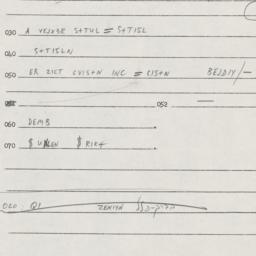 030 A VEJDBE S+TUL = S+TISL
040 S+TISLN
050 ER ZICT CVIS+N INC = CIS+N BEJDIY/-
052
060 DEMB
070 $ $ RIK+
020 Q1 ZENIYN